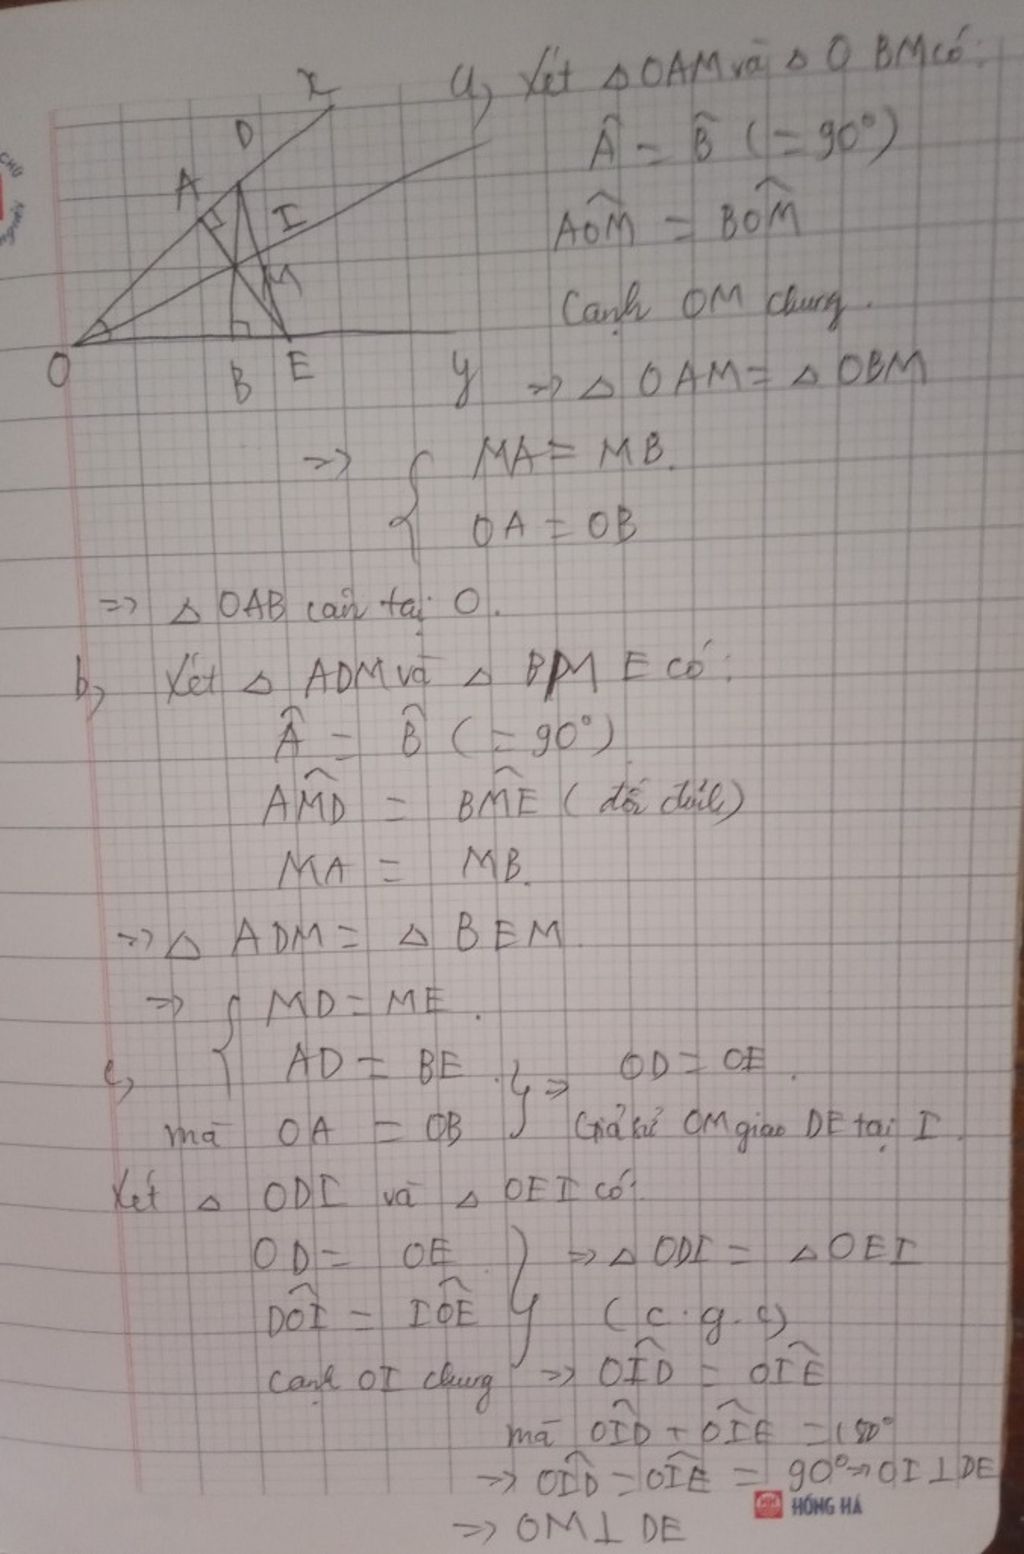 x
D
A
I
M
O
B E y
a, Xét △ OAM và △ OBM có:
Â = B̂ (= 90°)
AÔM = BÔM
Cạnh OM chung.
=> △ OAM = △ OBM
=> { MA = MB.
OA = OB
=> △ OAB cân tại O.
b, Xét △ ADM và △ BME có:
Â = B̂ (= 90°)
AM̂D = BM̂E (đối đỉnh)
MA = MB.
=> △ ADM = △ BEM.
=> { MD = ME.
c, AD = BE. } => OD = OE.
mà OA = OB Giả sử OM giao DE tại I.
Xét △ ODI và △ OEI có:
OD = OE } => △ ODI = △ OEI
DÔI = IÔE (c.g.c)
cạnh OI chung => OÎD = OÎE
mà OÎD + OÎE = 180°
=> OÎD = OÎE = 90° => OI ⊥ DE
=> OM ⊥ DE
HỒNG HÀ